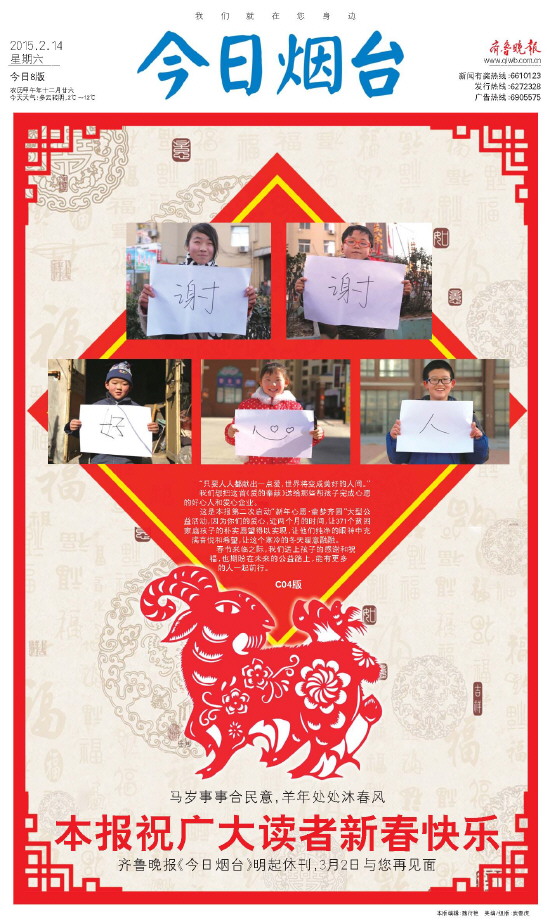 我们就在您身边
2015.2.14
星期六
今日8版
农历甲午年十二月廿六
今天天气:多云转阴,2℃~12℃
今日烟台
齐鲁晚报
www.qlwb.com.cn
新闻有奖热线:6610123
发行热线:6272328
广告热线:6905575
谢
谢
好
心
人
“只要人人都献出一点爱,世界将变成美好的人间。”
我们想把这首《爱的奉献》送给那些帮孩子完成心愿
的好心人和爱心企业。
这是本报第二次启动“新年心愿·童梦齐圆”大型公
益活动,因为你们的爱心,近两个月的时间,让371个贫困
家庭孩子的朴实愿望得以实现,让他们纯净的眼神中充
满喜悦和希望,让这个寒冷的冬天暖意融融。
春节来临之际,我们送上孩子的感谢和祝
福,也期盼在未来的公益路上,能有更多
的人一起前行。
C04版
吉祥
马岁事事合民意,羊年处处沐春风
本报祝广大读者新春快乐
齐鲁晚报《今日烟台》明起休刊,3月2日与您再见面